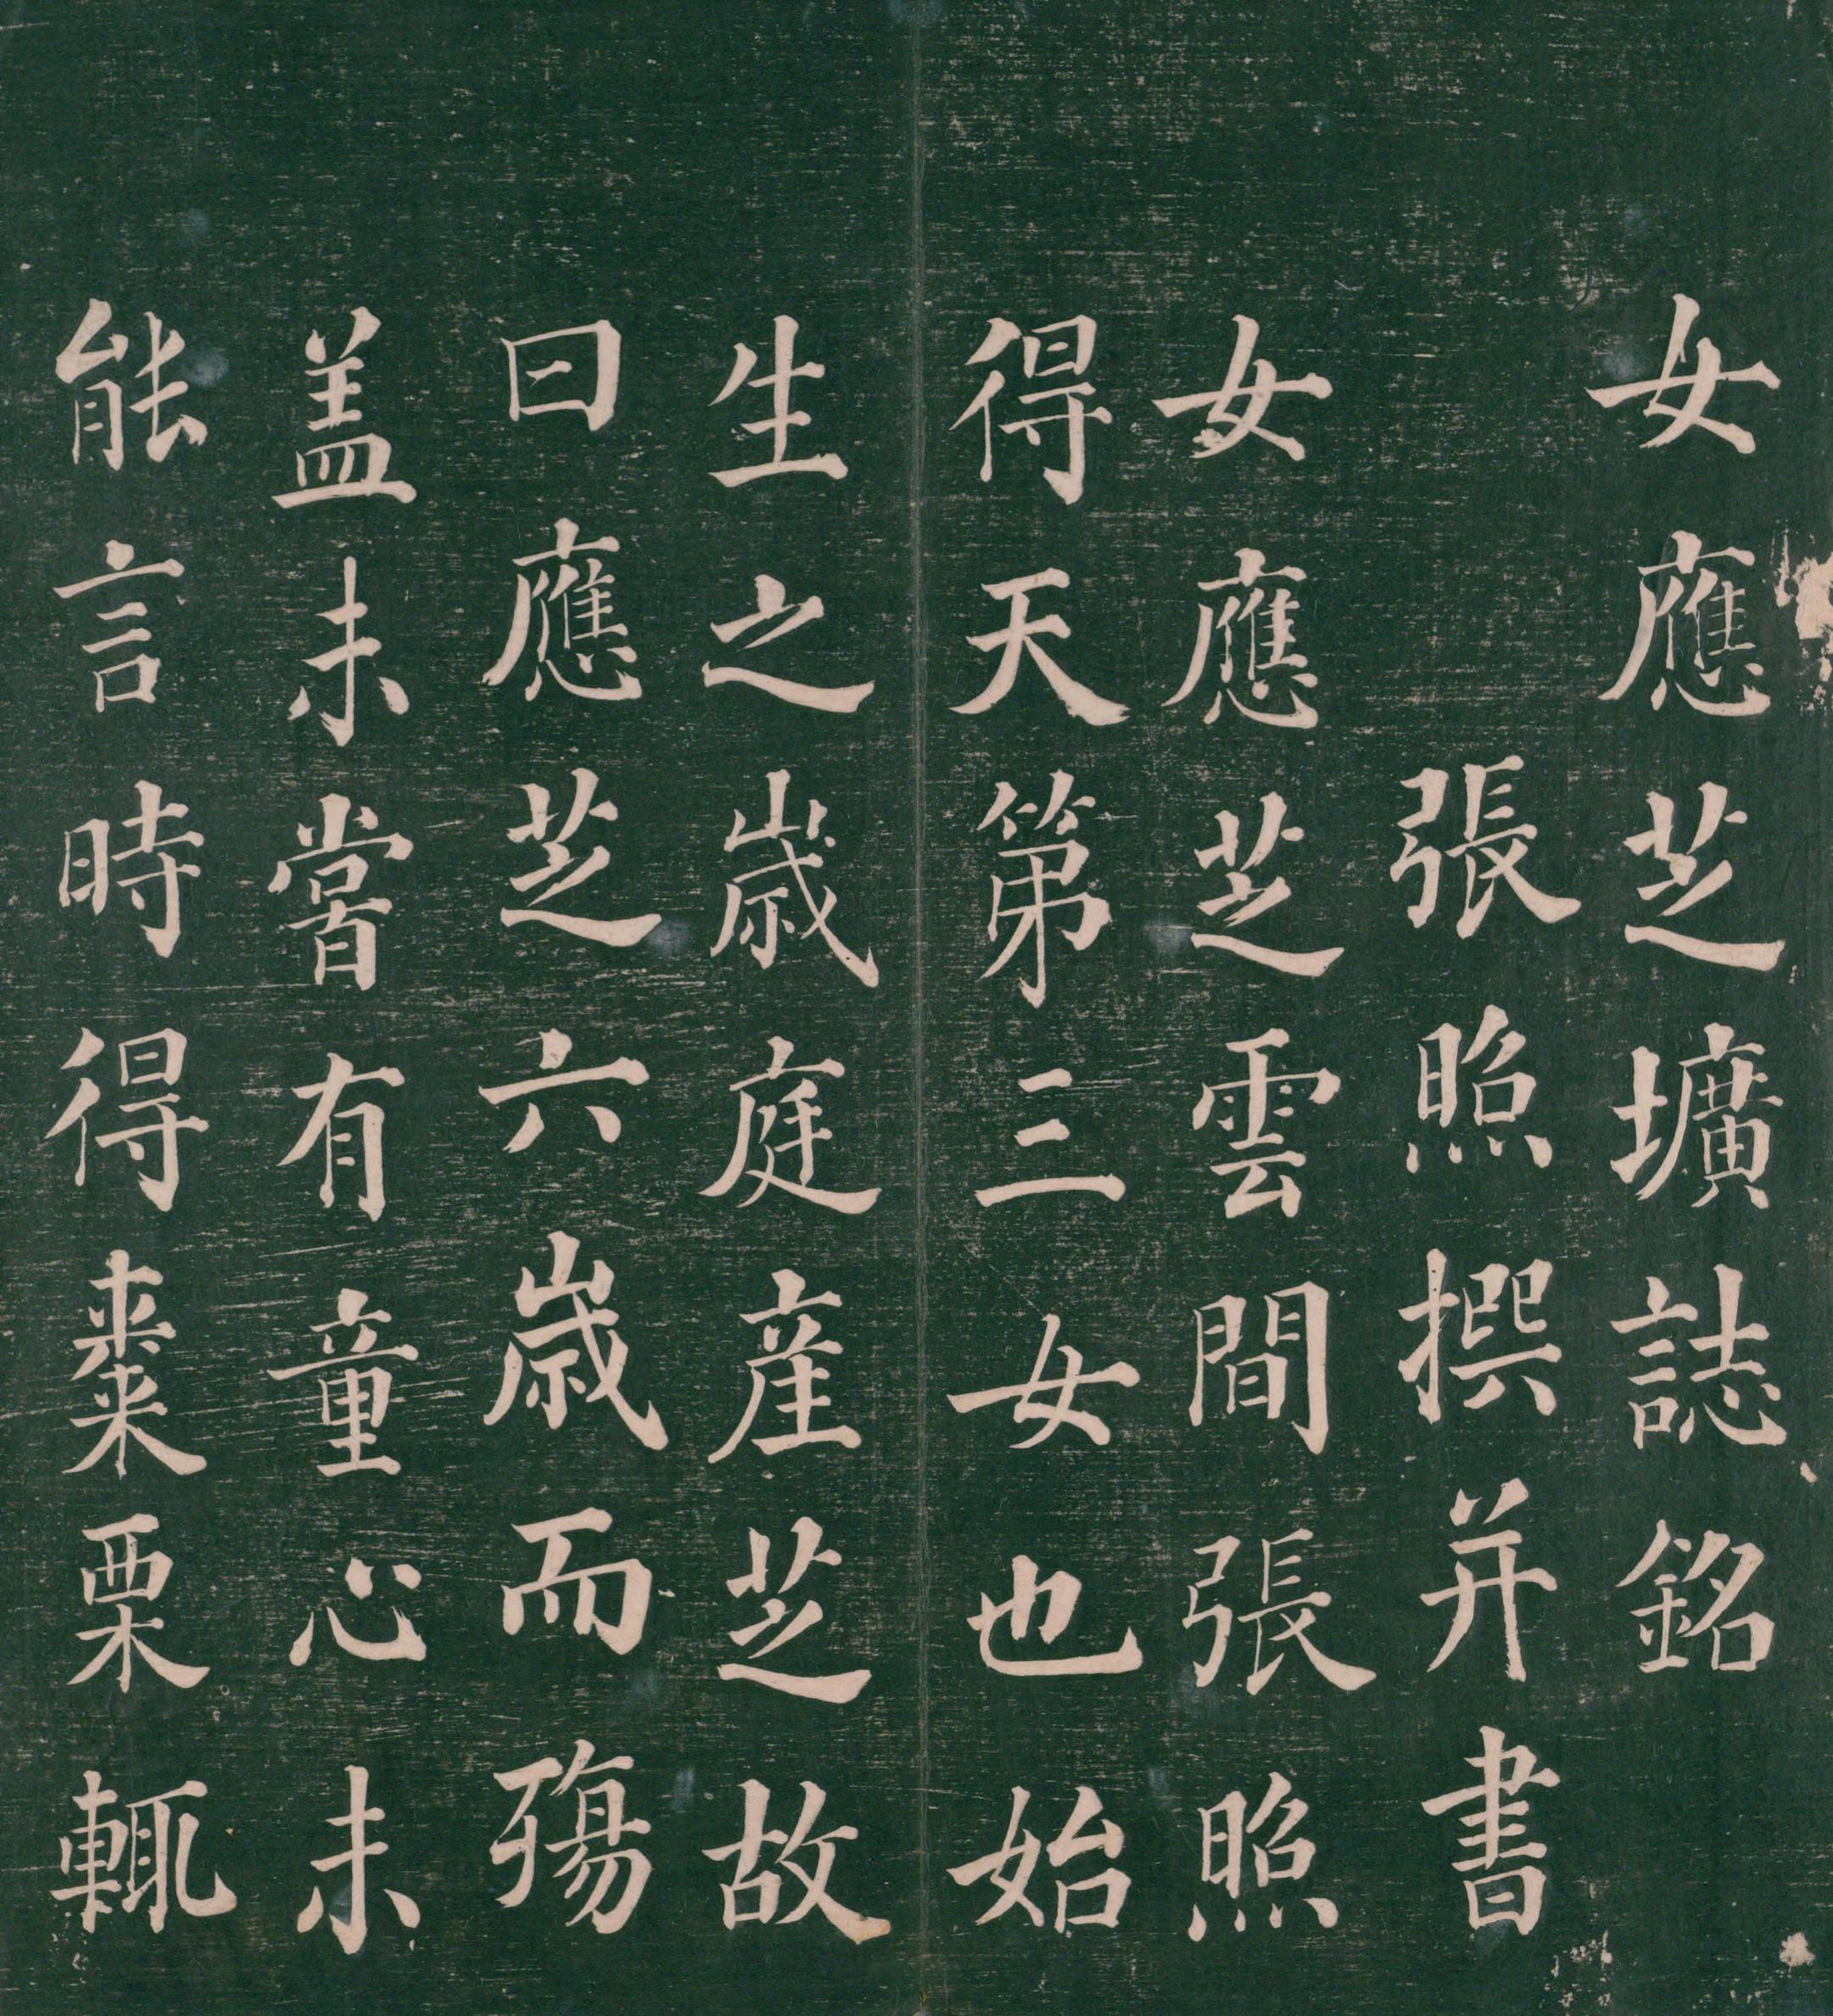 女應芝壙誌銘
張照撰并書
女應芝雲間張照
得天第三女也始
生之歲庭產芝故
曰應芝六歲而殤
盖未嘗有童心未
能言時得棗栗輒